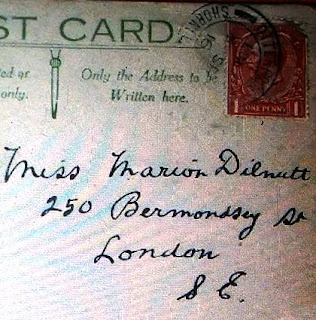 ST CARD
ed or
only.
Only the Address to be
Written here.
1 ONE PENNY 1
Miss Marion Dilnutt
250 Bermondsey St
London
S.E.